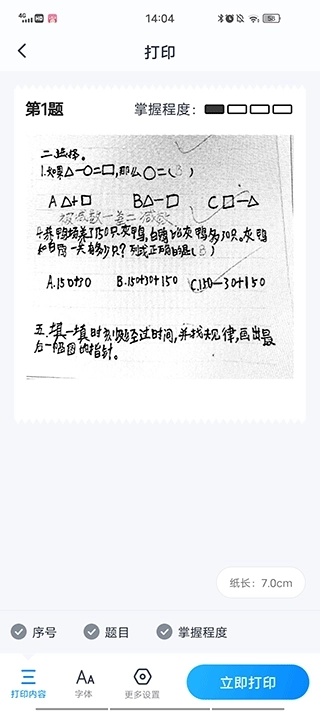 4G HD 14:04 58
打印
第1题 掌握程度：
二.选择。
1.如果△-○=□,那么○=(B)
A △+□ B△-□ C □-△
被减数-差=减数
4.养鸭场养了150只灰鸭,白鸭比灰鸭多30只。灰鸭
和白鸭一共有多少只?列式正确的是(B)
A.150+30 B.150+30+150 C.150-30+150
五.填一填时刻或经过时间,并找规律,画出最
后一幅图的指针。
纸长：7.0cm
序号 题目 掌握程度
打印内容 字体 更多设置 立即打印